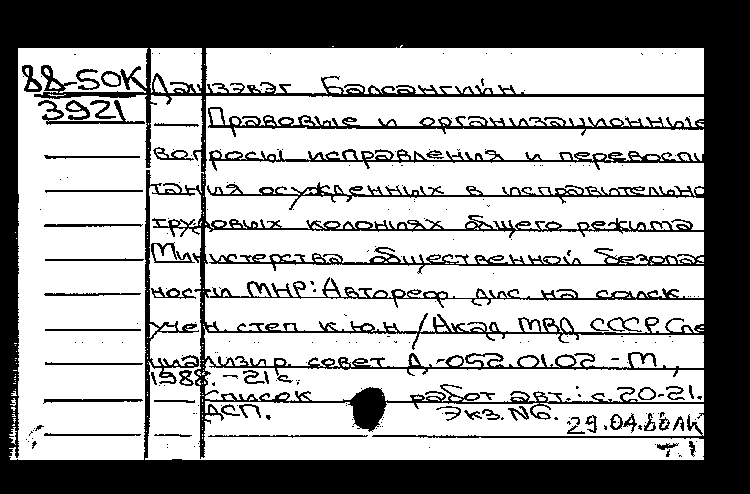 88-50К Дашзэвэг Балсангийн.
3921
Правовые и организационные
вопросы исправления и перевоспи
тания осужденных в исправительно
трудовых колониях общего режима
Министерства общественной безопас
ности МНР: Автореф. дис. на соиск.
учен. степ к.ю.н. /Акад МВД СССР. Спе
циализир. совет Д.-052.01.02 - М.,
1988. - 21 с.
Список работ авт.: с. 20-21.
ДСП. Экз. N6.
29.04.88 ЛК
Т. 1